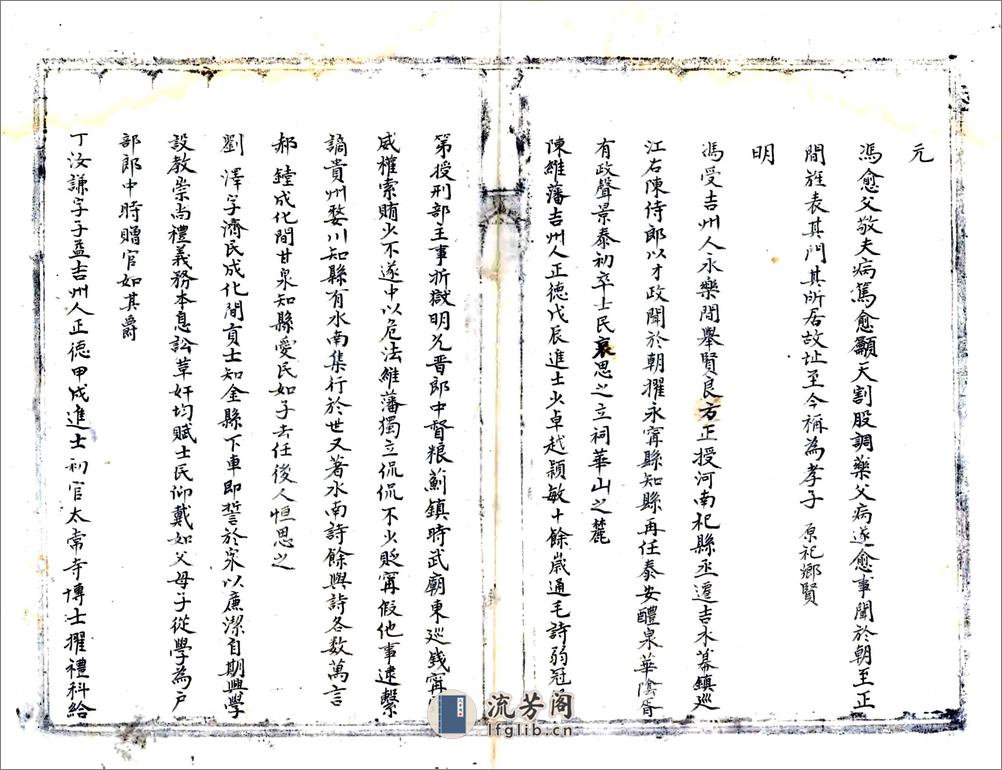 元
馮愈父敬夫病篤愈籲天割股調藥父病遂愈事聞於朝至正
間旌表其門其所居故址至今稱為孝子 原祀鄉賢
明
馮受吉州人永樂間舉賢良方正授河南杞縣丞遷吉水幕鎮巡
江右陳侍郎以才政聞於朝擢永寧縣知縣再任泰安醴泉華陰皆
有政聲景泰初卒士民哀思之立祠華山之麓
陳維藩吉州人正德戊辰進士少卓越穎敏十餘歲通毛詩弱冠
第授刑部主事折獄明允晋郎中督粮薊鎮時武廟東巡錢寧
威權索賄少不遂中以危法維藩獨立侃侃不少貶寧假他事逮繫
謫貴州婺川知縣有水南集行於世又著水南詩餘與詩各数萬言
郝鏜成化間甘泉知縣愛民如子去任後人恒思之
劉 澤字濟民成化間貢士知金縣下車即誓於衆以廉潔自期興學
設教崇尚禮義務本息訟革奸均賦士民仰戴如父母子從學為戶
部郎中時贈官如其爵
丁汝謙字子益吉州人正德甲戌進士初官太常寺博士擢禮科給
流芳阁
lfglib.cn